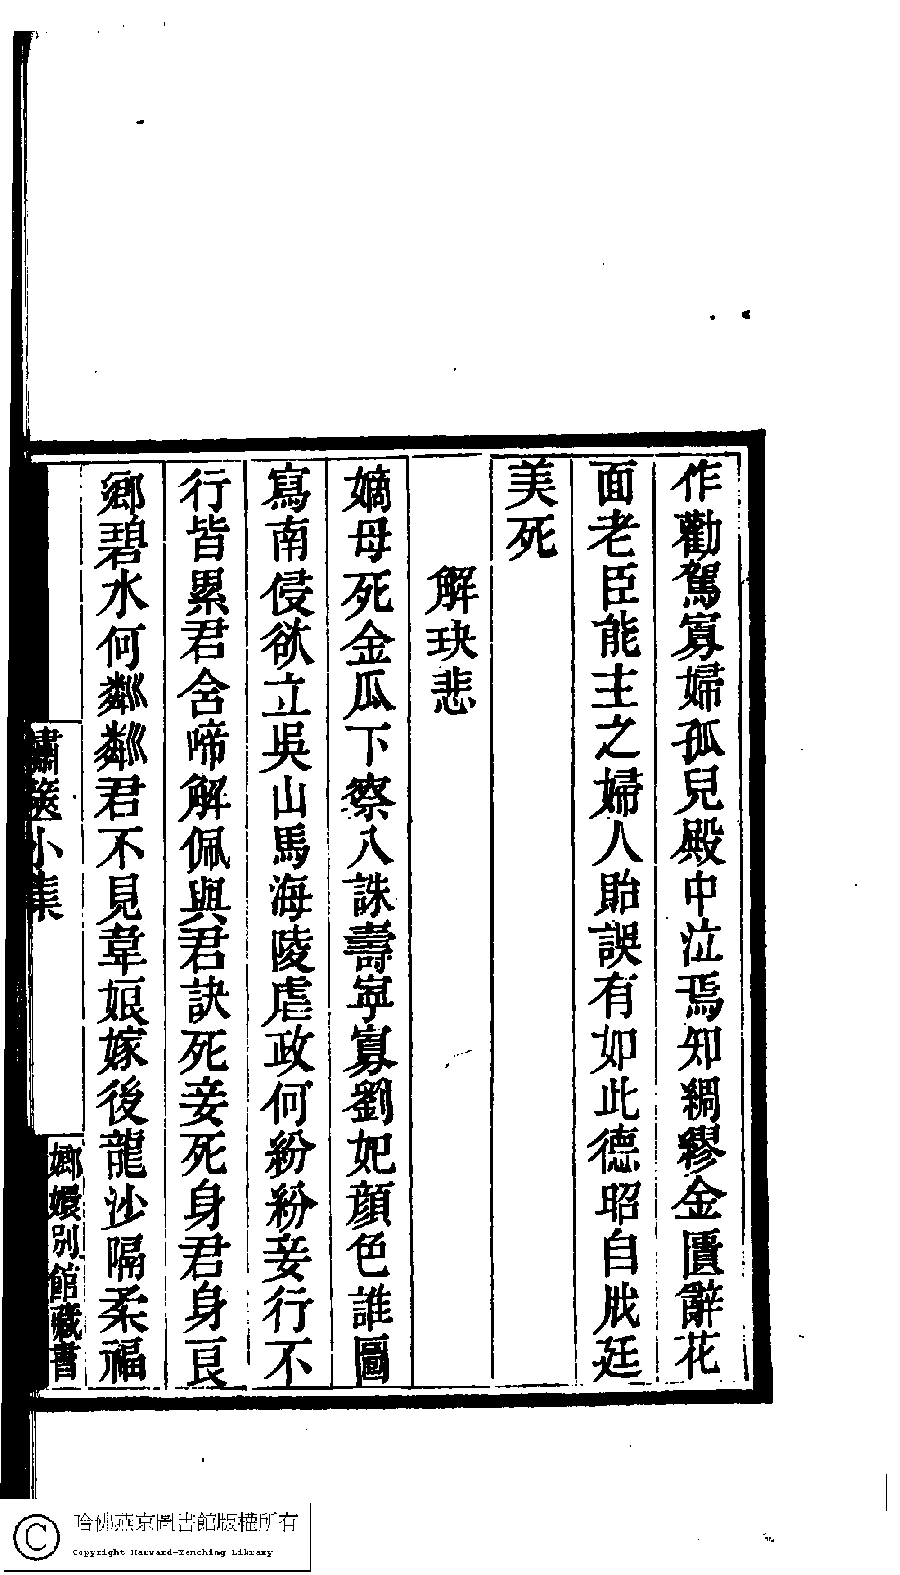 作勸駕寡婦孤兒殿中泣焉知綢繆金匱辭花
面老臣能主之婦人貽誤有如此德昭自戕廷
美死
解玦悲
嫡母死金瓜下察八誅壽寧寡劉妃顏色誰圖
寫南侵欲立吳山馬海陵虐政何紛紛妾行不
行皆累君舍啼解佩與君訣死妾死身君身艮
鄉碧水何粼粼君不見韋娘嫁後龍沙隔柔福
小集
嫏嬛別館藏書
哈佛燕京圖書館版權所有
Copyright Harvard-Yenching Library